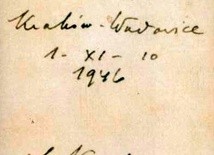 Kraków-Wadowice
1 - XI - 10
1946